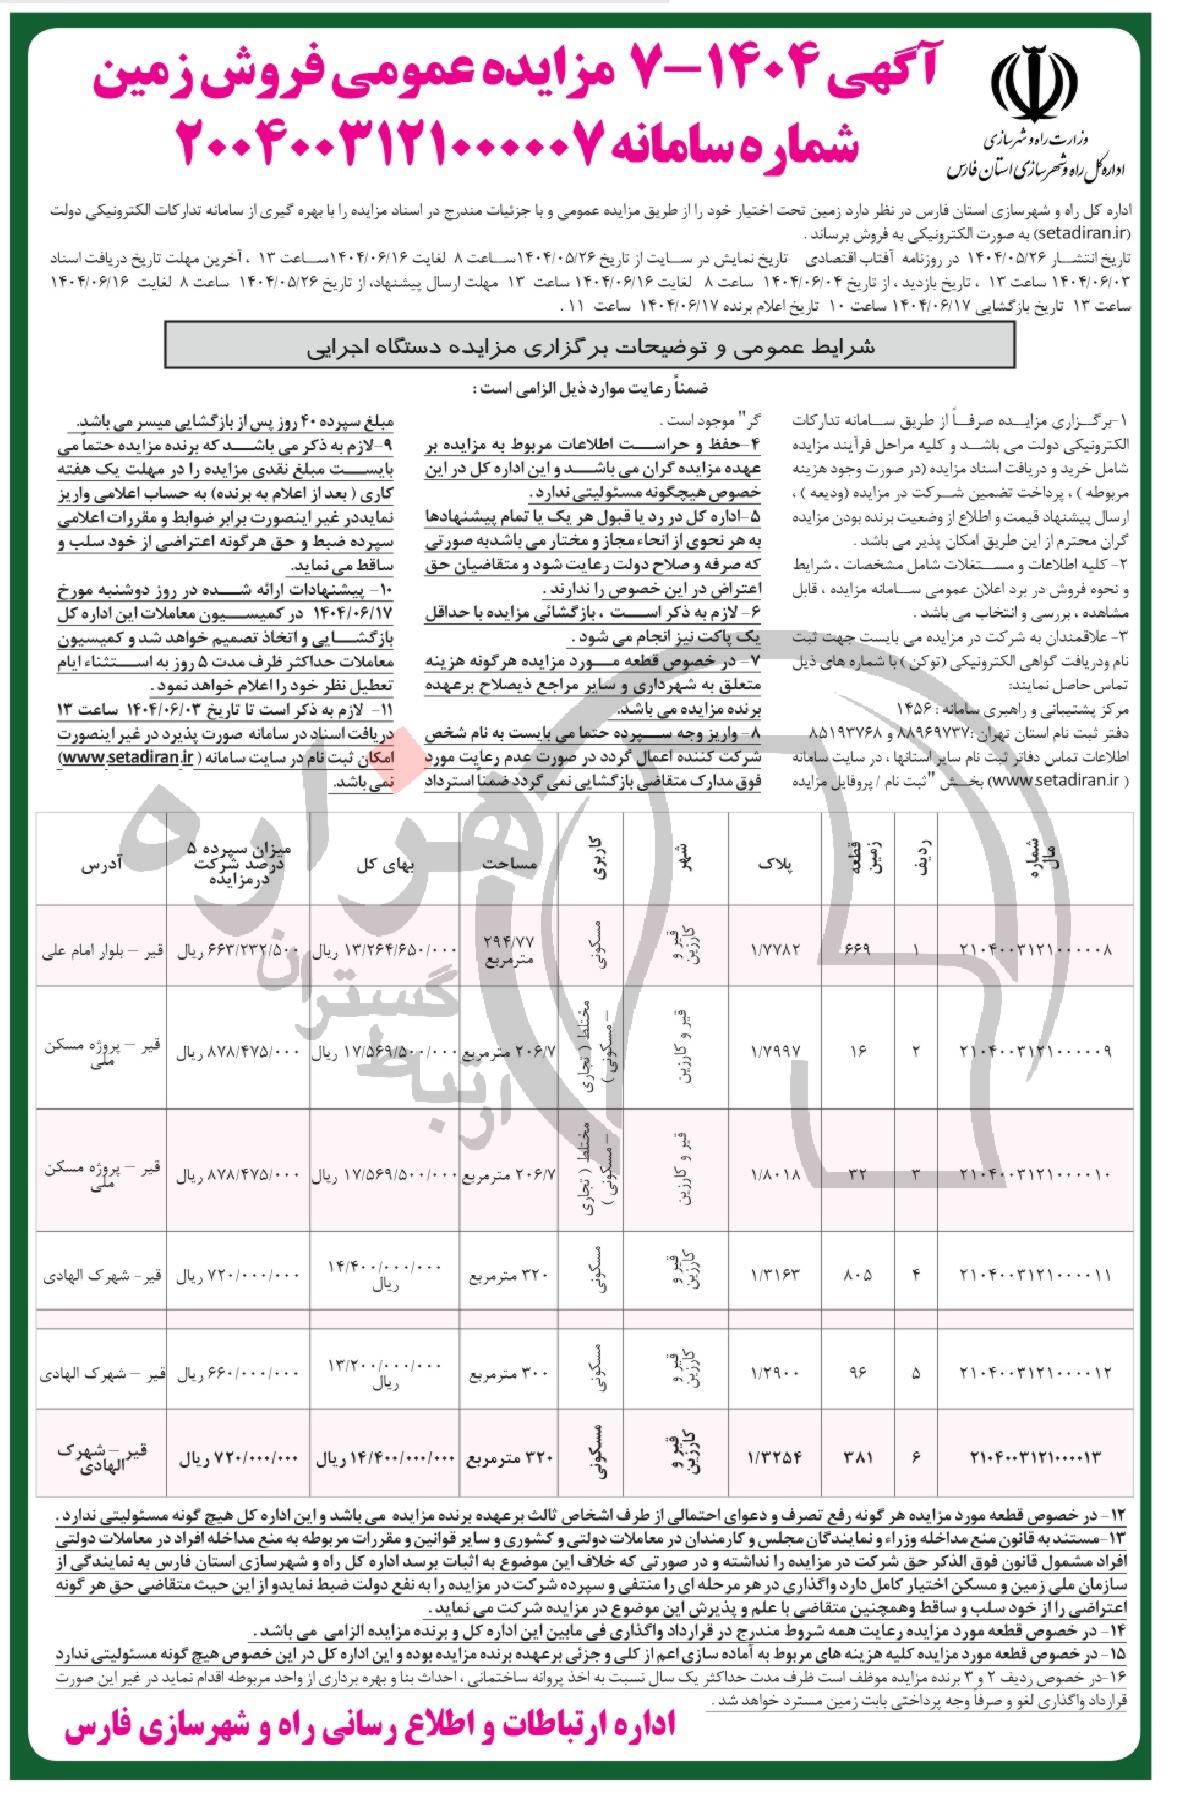 آگهی ۱۴۰۴-۷ مزایده عمومی فروش زمین
شماره سامانه ۲۰۰۴۰۰۳۱۲۱۰۰۰۰۰۷
وزارت راه و شهرسازی
اداره کل راه و شهرسازی استان فارس
اداره کل راه و شهرسازی استان فارس در نظر دارد زمین تحت اختیار خود را از طریق مزایده عمومی و با جزئیات مندرج در اسناد مزایده را با بهره گیری از سامانه تدارکات الکترونیکی دولت
(setadiran.ir) به صورت الکترونیکی به فروش برساند .
تاریخ انتشار ۱۴۰۴/۰۵/۲۶ در روزنامه آفتاب اقتصادی تاریخ نمایش در سایت از تاریخ ۱۴۰۴/۰۵/۲۶ساعت ۸ لغایت ۱۴۰۴/۰۶/۱۶ساعت ۱۳ ، آخرین مهلت تاریخ دریافت اسناد
۱۴۰۴/۰۶/۰۳ ساعت ۱۳ ، تاریخ بازدید ، از تاریخ ۱۴۰۴/۰۶/۰۴ ساعت ۸ لغایت ۱۴۰۴/۰۶/۱۶ ساعت ۱۳ مهلت ارسال پیشنهاد، از تاریخ ۱۴۰۴/۰۵/۲۶ ساعت ۸ لغایت ۱۴۰۴/۰۶/۱۶
ساعت ۱۳ تاریخ بازگشایی ۱۴۰۴/۰۶/۱۷ ساعت ۱۰ تاریخ اعلام برنده ۱۴۰۴/۰۶/۱۷ ساعت ۱۱ .
شرایط عمومی و توضیحات برگزاری مزایده دستگاه اجرایی
ضمناً رعایت موارد ذیل الزامی است :
۱-برگزاری مزایده صرفاً از طریق سامانه تدارکات
الکترونیکی دولت می باشد و کلیه مراحل فرآیند مزایده
شامل خرید و دریافت اسناد مزایده (در صورت وجود هزینه
مربوطه ) ، پرداخت تضمین شرکت در مزایده (ودیعه ) ،
ارسال پیشنهاد قیمت و اطلاع از وضعیت برنده بودن مزایده
گران محترم از این طریق امکان پذیر می باشد .
۲- کلیه اطلاعات و مستغلات شامل مشخصات ، شرایط
و نحوه فروش در برد اعلان عمومی سامانه مزایده ، قابل
مشاهده ، بررسی و انتخاب می باشد .
۳- علاقمندان به شرکت در مزایده می بایست جهت ثبت
نام ودریافت گواهی الکترونیکی (توکن ) با شماره های ذیل
تماس حاصل نمایند:
مرکز پشتیبانی و راهبری سامانه : ۱۴۵۶
دفتر ثبت نام استان تهران :۸۸۹۶۹۷۳۷ و ۸۵۱۹۳۷۶۸
اطلاعات تماس دفاتر ثبت نام سایر استانها ، در سایت سامانه
( www.setadiran.ir) بخش "ثبت نام / پروفایل مزایده
گر" موجود است .
۴-حفظ و حراست اطلاعات مربوط به مزایده بر
عهده مزایده گران می باشد و این اداره کل در این
خصوص هیچگونه مسئولیتی ندارد .
۵-اداره کل در رد یا قبول هر یک یا تمام پیشنهادها
به هر نحوی از انحاء مجاز و مختار می باشدبه صورتی
که صرفه و صلاح دولت رعایت شود و متقاضیان حق
اعتراض در این خصوص را ندارند .
۶- لازم به ذکر است ، بازگشائی مزایده با حداقل
یک پاکت نیز انجام می شود .
۷- در خصوص قطعه مورد مزایده هرگونه هزینه
متعلق به شهرداری و سایر مراجع ذیصلاح برعهده
برنده مزایده می باشد.
۸- واریز وجه سپرده حتما می بایست به نام شخص
شرکت کننده اعمال گردد در صورت عدم رعایت مورد
فوق مدارک متقاضی بازگشایی نمی گردد ضمناً استرداد
مبلغ سپرده ۴۰ روز پس از بازگشایی میسر می باشد.
۹-لازم به ذکر می باشد که برنده مزایده حتماً می
بایست مبلغ نقدی مزایده را در مهلت یک هفته
کاری ( بعد از اعلام به برنده) به حساب اعلامی واریز
نمایددر غیر اینصورت برابر ضوابط و مقررات اعلامی
سپرده ضبط و حق هرگونه اعتراضی از خود سلب و
ساقط می نماید.
۱۰- پیشنهادات ارائه شده در روز دوشنبه مورخ
۱۴۰۴/۰۶/۱۷ در کمیسیون معاملات این اداره کل
بازگشایی و اتخاذ تصمیم خواهد شد و کمیسیون
معاملات حداکثر ظرف مدت ۵ روز به استثناء ایام
تعطیل نظر خود را اعلام خواهد نمود .
۱۱- لازم به ذکر است تا تاریخ ۱۴۰۴/۰۶/۰۳ ساعت ۱۳
دریافت اسناد در سامانه صورت پذیرد در غیر اینصورت
امکان ثبت نام در سایت سامانه ( www.setadiran.ir)
نمی باشد.
شماره مال ردیف قطعه زمین پلاک شهر کاربری مساحت بهای کل میزان سپرده ۵ درصد شرکت درمزایده آدرس
۲۱۰۴۰۰۳۱۲۱۰۰۰۰۰۸ ۱ ۶۶۹ ۱/۷۷۸۲ قیر و کارزین مسکونی ۲۹۴/۷۷ مترمربع ۱۳/۲۶۴/۶۵۰/۰۰۰ ریال ۶۶۳/۲۳۲/۵۰۰ ریال قیر – بلوار امام علی
۲۱۰۴۰۰۳۱۲۱۰۰۰۰۰۹ ۲ ۱۶ ۱/۷۹۹۷ قیر و کارزین مختلط ( تجاری – مسکونی ) ۲۰۶/۷ مترمربع ۱۷/۵۶۹/۵۰۰/۰۰۰ ریال ۸۷۸/۴۷۵/۰۰۰ ریال قیر – پروژه مسکن ملی
۲۱۰۴۰۰۳۱۲۱۰۰۰۰۱۰ ۳ ۳۲ ۱/۸۰۱۸ قیر و کارزین مختلط ( تجاری – مسکونی ) ۲۰۶/۷ مترمربع ۱۷/۵۶۹/۵۰۰/۰۰۰ ریال ۸۷۸/۴۷۵/۰۰۰ ریال قیر – پروژه مسکن ملی
۲۱۰۴۰۰۳۱۲۱۰۰۰۰۱۱ ۴ ۸۰۵ ۱/۳۱۶۳ قیر و کارزین مسکونی ۳۲۰ مترمربع ۱۴/۴۰۰/۰۰۰/۰۰۰ ریال ۷۲۰/۰۰۰/۰۰۰ ریال قیر- شهرک الهادی
۲۱۰۴۰۰۳۱۲۱۰۰۰۰۱۲ ۵ ۹۶ ۱/۲۹۰۰ قیر و کارزین مسکونی ۳۰۰ مترمربع ۱۳/۲۰۰/۰۰۰/۰۰۰ ریال ۶۶۰/۰۰۰/۰۰۰ ریال قیر – شهرک الهادی
۲۱۰۴۰۰۳۱۲۱۰۰۰۰۱۳ ۶ ۳۸۱ ۱/۳۲۵۴ قیر و کارزین مسکونی ۳۲۰ مترمربع ۱۴/۴۰۰/۰۰۰/۰۰۰ ریال ۷۲۰/۰۰۰/۰۰۰ ریال قیر – شهرک الهادی
۱۲- در خصوص قطعه مورد مزایده هر گونه رفع تصرف و دعوای احتمالی از طرف اشخاص ثالث برعهده برنده مزایده می باشد و این اداره کل هیچ گونه مسئولیتی ندارد .
۱۳-مستند به قانون منع مداخله وزراء و نمایندگان مجلس و کارمندان در معاملات دولتی و کشوری و سایر قوانین و مقررات مربوطه به منع مداخله افراد در معاملات دولتی
افراد مشمول قانون فوق الذکر حق شرکت در مزایده را نداشته و در صورتی که خلاف این موضوع به اثبات برسد اداره کل راه و شهرسازی استان فارس به نمایندگی از
سازمان ملی زمین و مسکن اختیار کامل دارد واگذاری در هر مرحله ای را منتفی و سپرده شرکت در مزایده را به نفع دولت ضبط نمایدو از این حیث متقاضی حق هر گونه
اعتراضی را از خود سلب و ساقط وهمچنین متقاضی با علم و پذیرش این موضوع در مزایده شرکت می نماید .
۱۴- در خصوص قطعه مورد مزایده رعایت همه شروط مندرج در قرارداد واگذاری فی مابین این اداره کل و برنده مزایده الزامی می باشد .
۱۵- در خصوص قطعه مورد مزایده کلیه هزینه های مربوط به آماده سازی اعم از کلی و جزئی برعهده برنده مزایده بوده و این اداره کل در این خصوص هیچ گونه مسئولیتی ندارد
۱۶-در خصوص ردیف ۲ و ۳ برنده مزایده موظف است ظرف مدت حداکثر یک سال نسبت به اخذ پروانه ساختمانی ، احداث بنا و بهره برداری از واحد مربوطه اقدام نماید در غیر این صورت
قرارداد واگذاری لغو و صرفاً وجه پرداختی بابت زمین مسترد خواهد شد .
اداره ارتباطات و اطلاع رسانی راه و شهرسازی فارس
هزاره
گستران
ارتباط